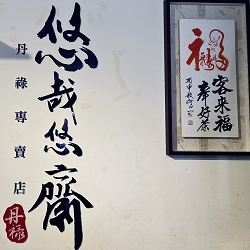 悠哉悠齋
丹祿專賣店
丹祿
福
客来福
奉好茶